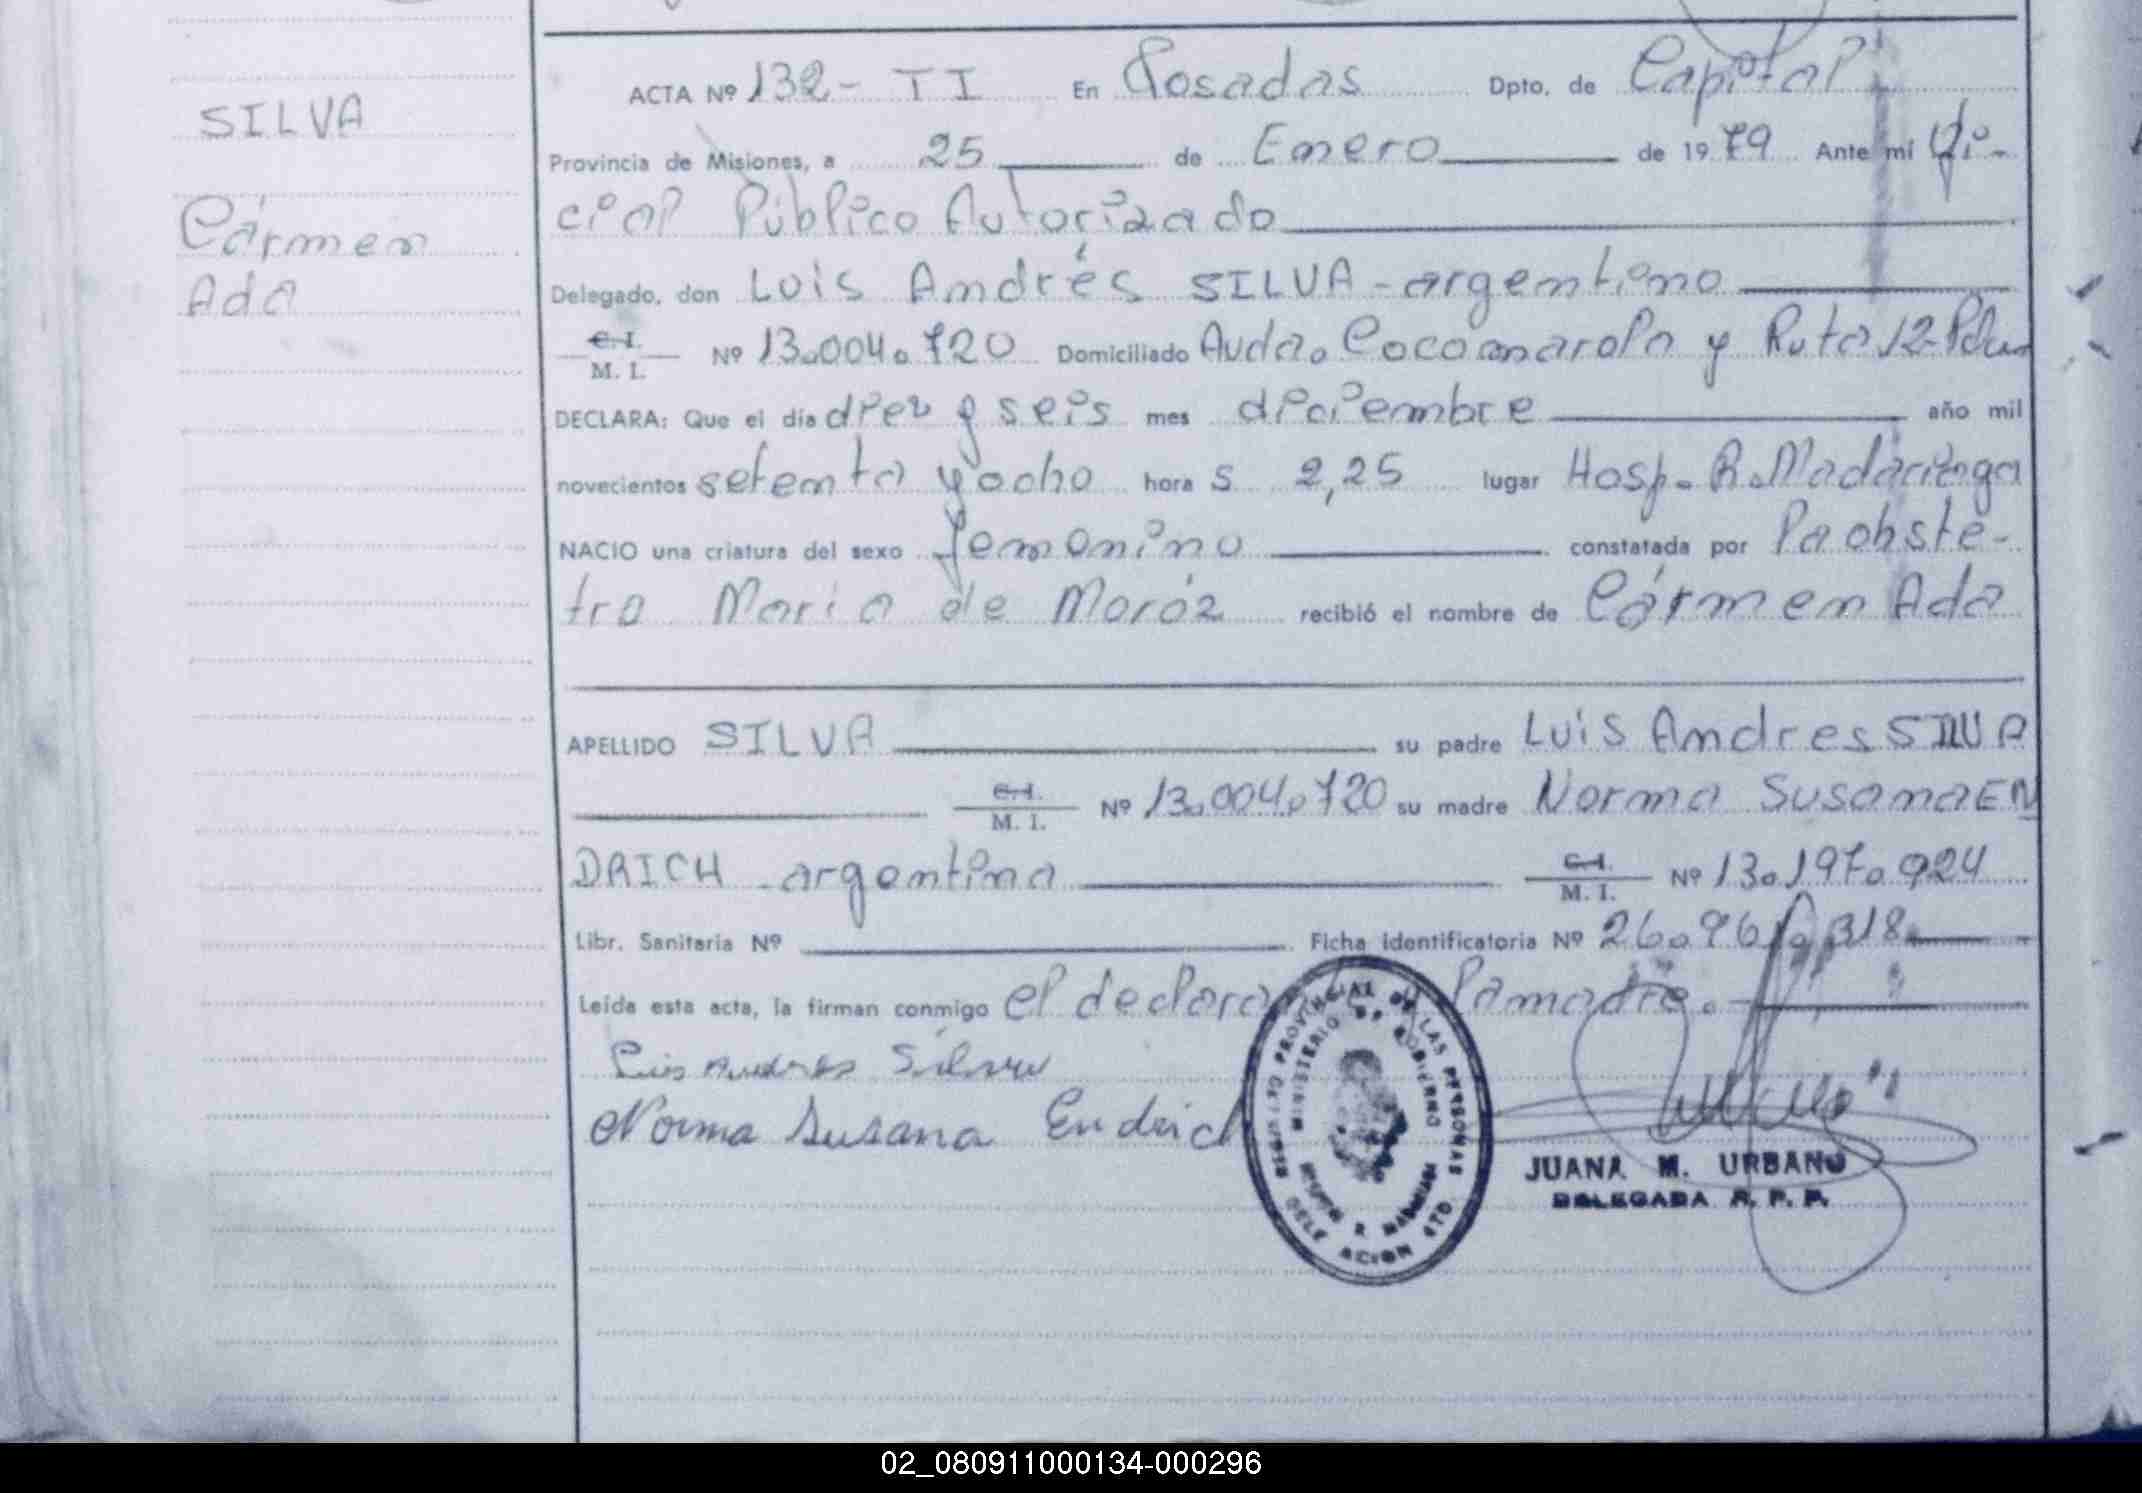 SILVA
Cármen
Ada
ACTA Nº 132 - TI En Posadas Dpto. de Capital
Provincia de Misiones, a 25 de Enero de 1979 Ante mí Ofi-
cial Público Autorizado
Delegado, don Luis Andrés SILVA - argentino
C. I.
M. I. Nº 13.004.720 Domiciliado Avda. Cocomarola y Ruta 12-
DECLARA: Que el día diez y seis mes diciembre año mil
novecientos setenta y ocho hora s 2,25 lugar Hosp. R. Madariaga
NACIO una criatura del sexo femenino constatada por La obste-
tra Maria de Moróz recibió el nombre de Cármen Ada
APELLIDO SILVA su padre Luis Andres SILVA
C. I.
M. I. Nº 13.004.720 su madre Norma Susana EN
DRICH - argentina C. I.
M. I. Nº 13.197.924
Libr. Sanitaria Nº Ficha Identificatoria Nº 26.961.318
Leída esta acta, la firman conmigo el declarante y la madre. -
Luis Andrés Silva
Norma Susana Endrich
REGISTRO PROVINCIAL DE LAS PERSONAS
MINISTERIO DE GOBIERNO
JUANA M. URBANO
DELEGADA R. P. P.
02_080911000134-000296